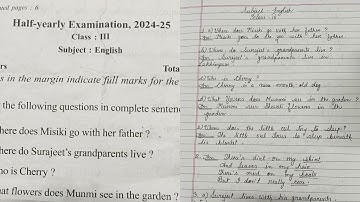 ued pages : 6
Half-yearly Examination, 2024-25
Class : III
Subject : English
rs
Tota
s in the margin indicate full marks for the
the following questions in complete sentenc
here does Misiki go with her father ?
here do Surajeet's grandparents live ?
ho is Cherry ?
hat flowers does Munmi see in the garden ?
Subject - English
Class - III
1. a) Where does Misiki go with her father ?
Ans: Misiki goes to the with her father.
b) Where do Surajeet's grandparents live ?
Ans: Surajeet's grandparents live in
c) Who is Cherry ?
Ans: Cherry is a nine month old dog
d) What flowers does Munmi see in the garden ?
Ans: Munmi sees flowers in the
garden
e) Where does the little red try to sleep ?
Ans: The little red tries to sleep beneath
his blanket
2. Ans: There's dirt on my shirt
And leaves in my hair
There's mud on my boots
But I don't really care.
3. a) Surajeet lives with his grandparents.